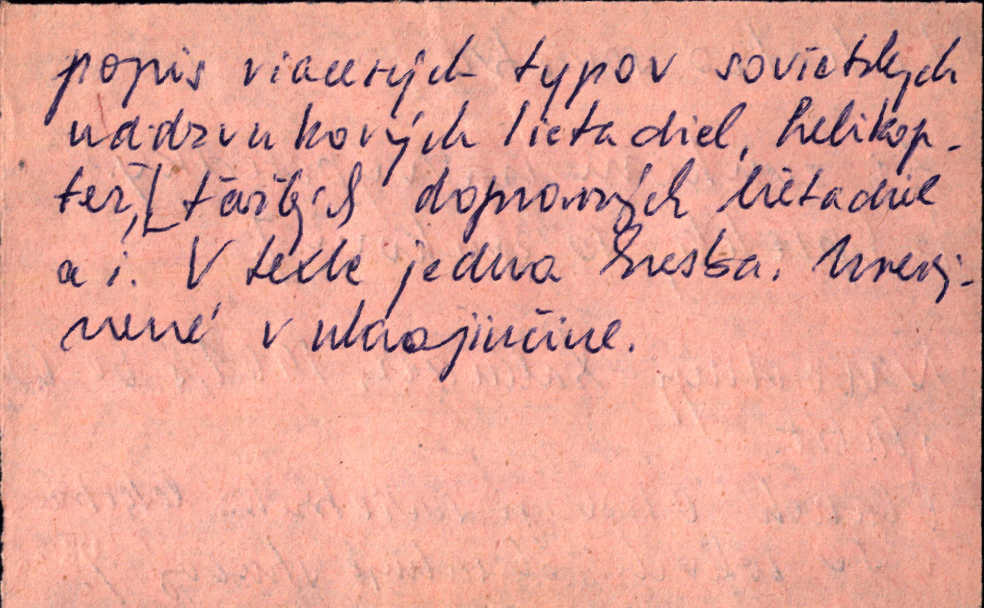 popis viacerých typov sovietskych
nadzvukových lietadiel, helikop-
ter, ťažkých dopravných lietadiel
a i. V texte jedna kresba. Uverej-
nené v ukrajinčine.